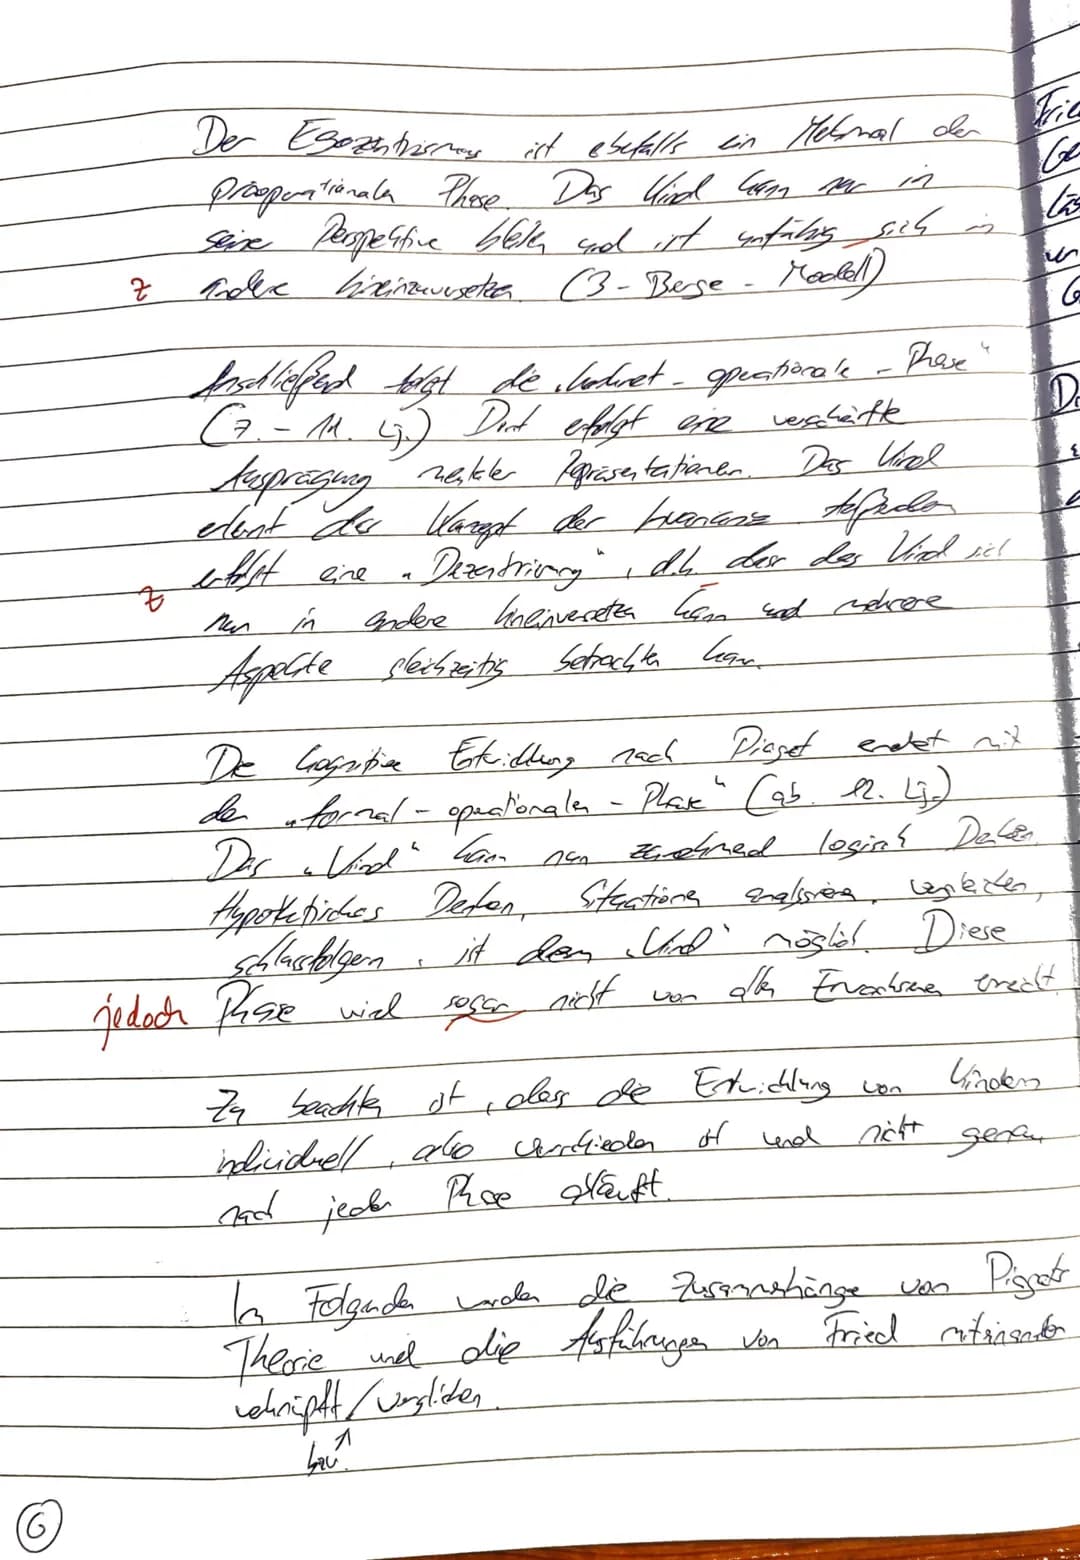 Der Egozentrismus ist ebefalls ein Merkmal der
präoperationalen Phase. Das Kind kann nur in
seine Perspektive bleiben und ist unfähig sich in
z andere hineinzuversetzen. (3-Berge-Modell)
Anschließend folgt die „konkret-operationale-Phase"
(7.-11. Lj.) Dort erfolgt eine verschärfte
Ausprägung mentaler Repräsentationen. Das Kind
erlernt das Konzept der Invarianz. Außerdem
erfolgt eine „Dezentrierung", d.h. dass das Kind sich
z nun in andere hineinversetzen kann und mehrere
Aspekte gleichzeitig betrachten kann.
Die kognitive Entwicklung nach Piaget endet mit
der „formal-operationalen-Phase" (ab. 12. Lj.)
Das „Kind" kann nun zunehmend logisch Denken.
Hypothetisches Denken, Situationen analysieren, vergleichen,
schlussfolgern, ist dem „Kind" möglich. Diese
jedoch Phase wird sogar nicht von allen Erwachsenen erreicht.
Zu beachten ist, dass die Entwicklung von Kindern
individuell, also verschieden ist und nicht genau
nach jeder Phase abläuft.
Im Folgenden werden die Zusammenhänge von Piagets
Theorie und die Ausführungen von Fried miteinander
verknüpft/verglichen.
bzw.
6